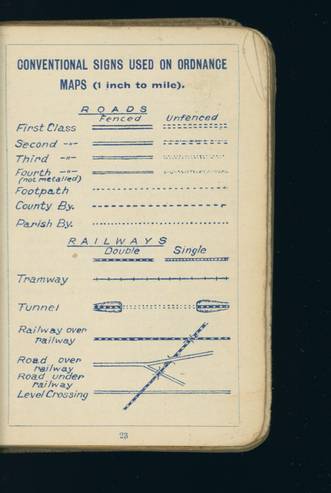 CONVENTIONAL SIGNS USED ON ORDNANCE
MAPS (1 inch to mile).
ROADS
Fenced Unfenced
First Class
Second -"-
Third -"-
Fourth -"-
(not metalled)
Footpath
County By.
Parish By.
RAILWAYS
Double Single
Tramway
Tunnel
Railway over
railway
Road over
railway
Road under
railway
Level Crossing
23